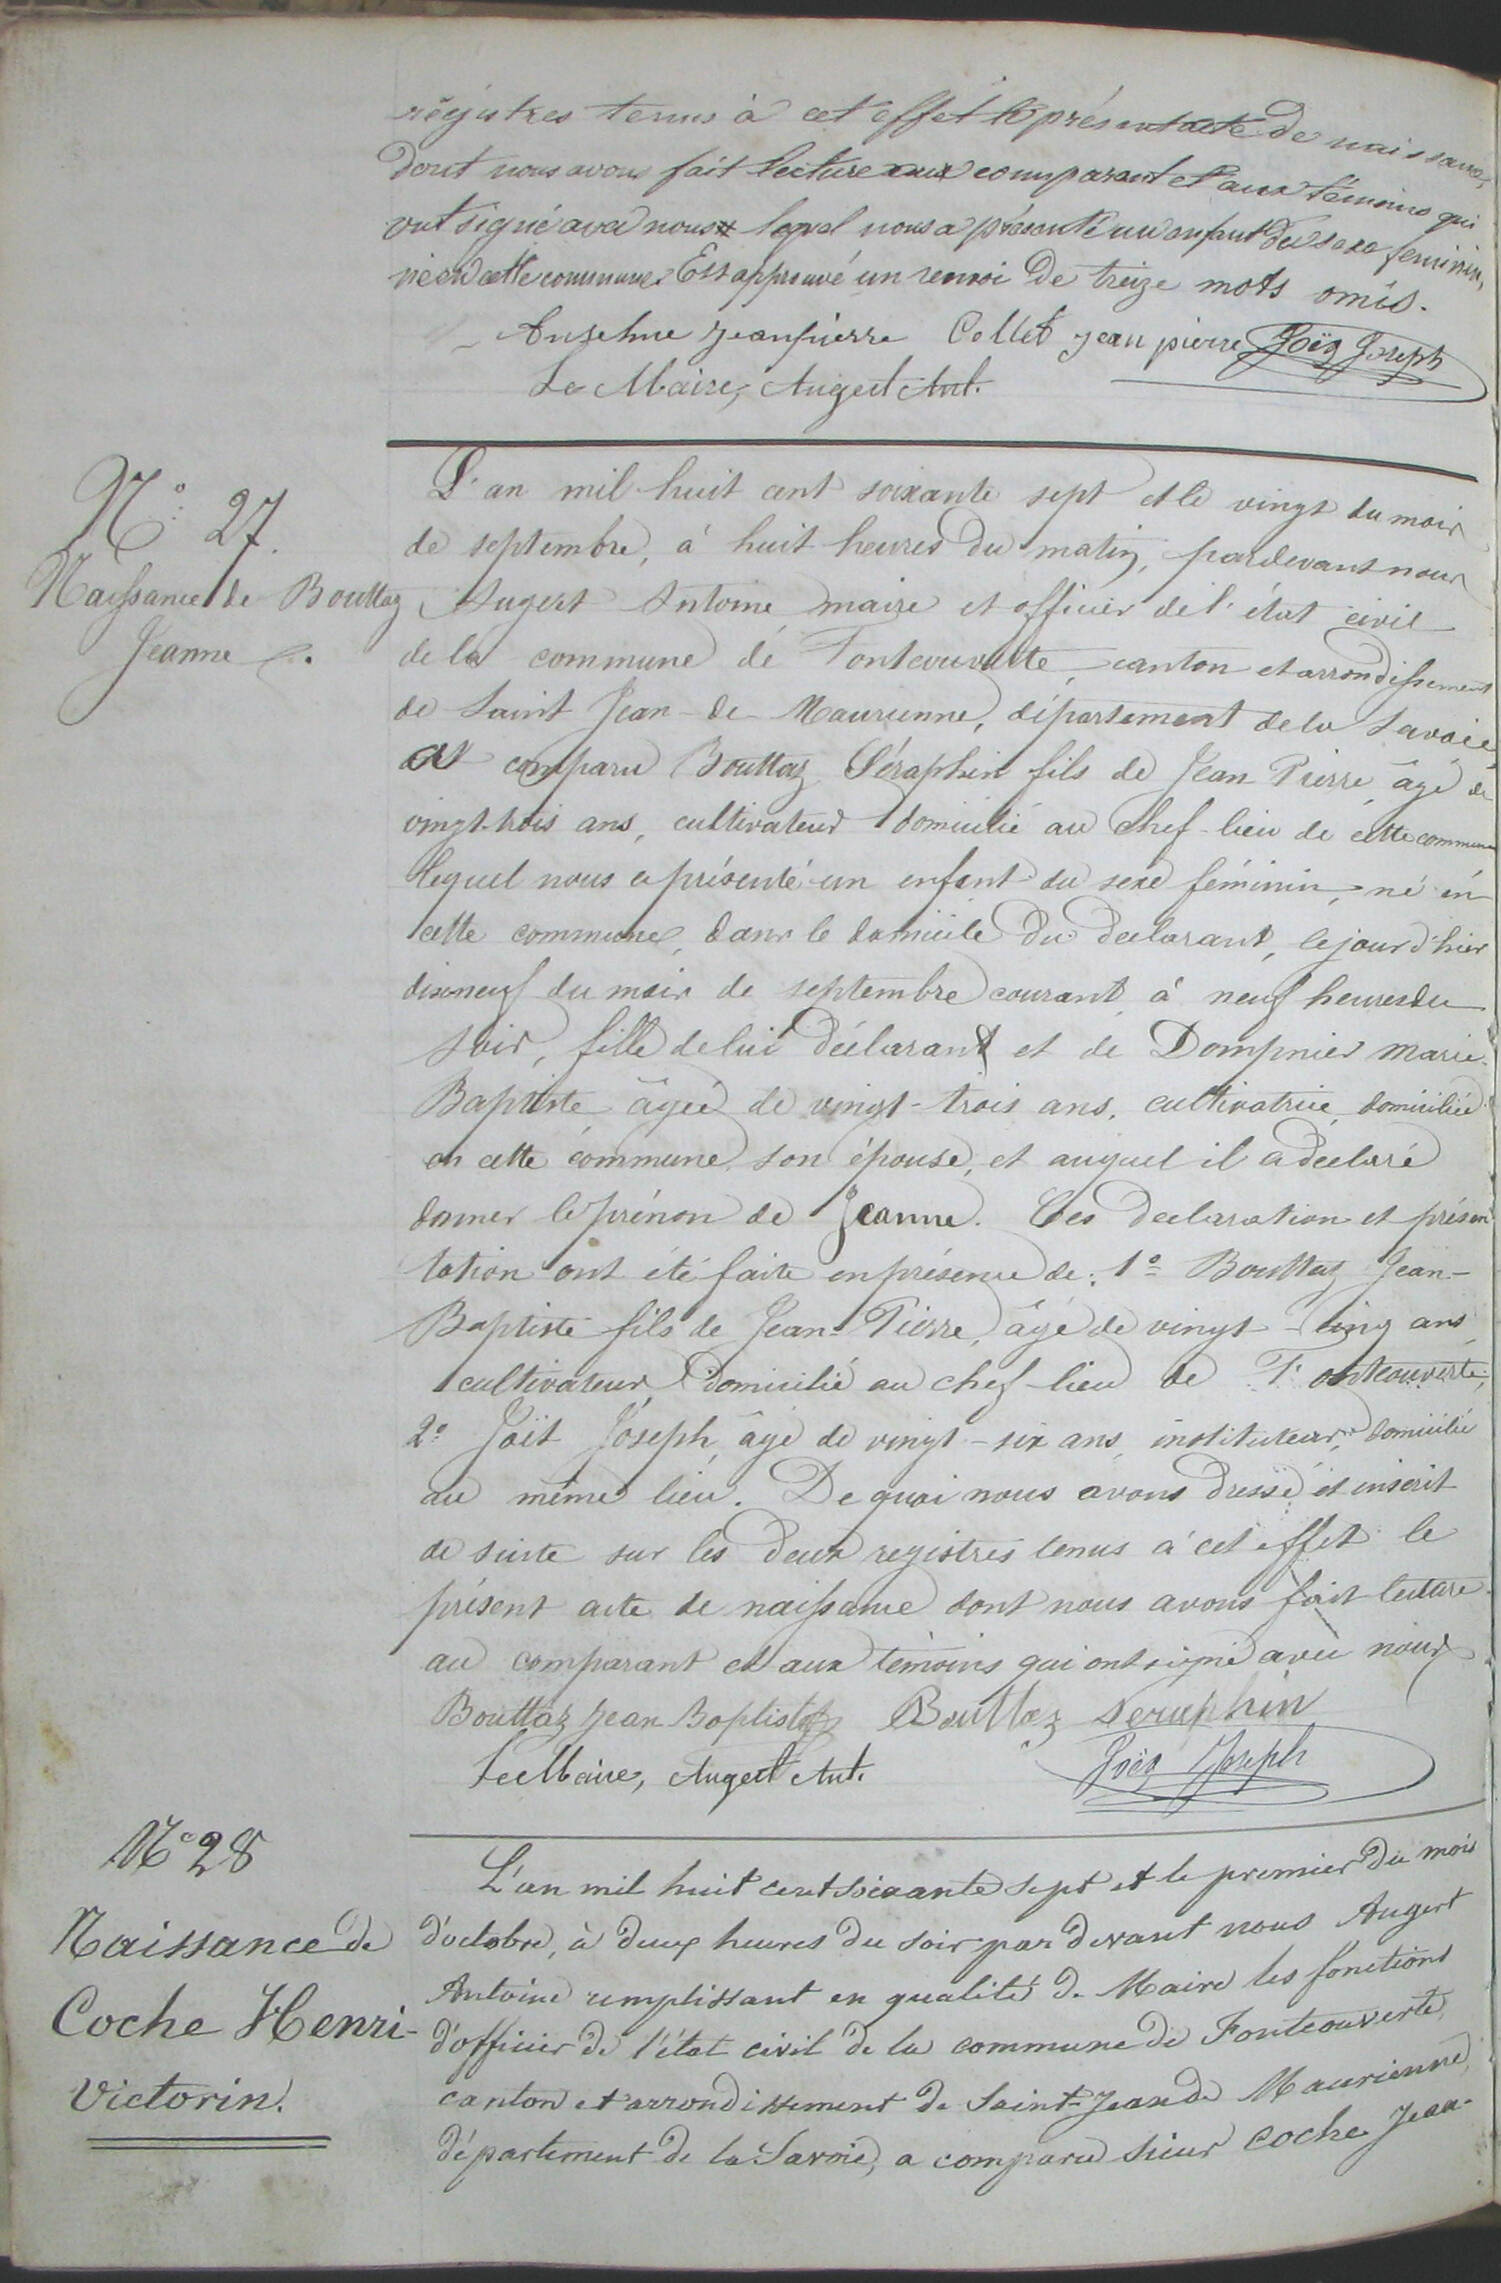 régistres tenus à cet effet le présent acte de naissance,
dont nous avons fait lecture aux comparant et aux témoins qui
ont signé avec nous lequel nous a présenté un enfant du sexe feminin,
né en cette commune. Est approuvé un renvoi de treize mots omis.
Anselme Jeanpierre Collet jean pierre Joët Joseph
Le Maire, Augert Ant.
N° 27.
Naissance de Bouttaz
Jeanne
L'an mil huit cent soixante sept et le vingt du mois
de septembre, à huit heures du matin, pardevant nous
Augert Antoine maire et officier de l'état civil
de la commune de Fontcouverte, canton et arrondissement
de Saint Jean-de-Maurienne, département de la Savoie,
est comparu Bouttaz Séraphin fils de Jean Pierre âgé de
vingt-trois ans, cultivateur domicilié au chef-lieu de cette commune
lequel nous a présenté un enfant du sexe féminin, né en
cette commune, dans le domicile du déclarant, le jour d'hier
dix-neuf du mois de septembre courant à neuf heures du
soir, fille de lui déclarant et de Dompnier Marie-
Baptiste âgée de vingt-trois ans, cultivatrice domiciliée
en cette commune son épouse, et auquel il a déclaré
donner le prénon de Jeanne. Ces declaration et présen
tation ont été faite en présence de: 1° Bouttaz Jean-
Baptiste fils de Jean-Pierre, âgé de vingt-cinq ans
cultivateur domicilié au chef-lieu de Fontcouverte,
2° Joët Joseph, âgé de vingt-six ans, instituteur, domicilié
au même lieu. De quoi nous avons dressé et inscrit
de suite sur les deux registres tenus à cet effet le
présent acte de naissance dont nous avons fait lecture
au comparant et aux témoins qui ont signé avec nous
Bouttaz Jean Baptiste Bouttaz Seraphin
Le Maire, Augert Ant. Joët Joseph
N° 28
Naissance de
Coche Henri-
Victorin.
L'an mil huit cent soixante sept et le premier du mois
d'octobre, à deux heures du soir par devant nous Augert
Antoine remplissant en qualité de Maire les fonctions
d'officier de l'état civil de la commune de Fontcouverte,
canton et arrondissement de Saint-Jean de Maurienne,
département de la Savoie, a comparu sieur Coche Jean-